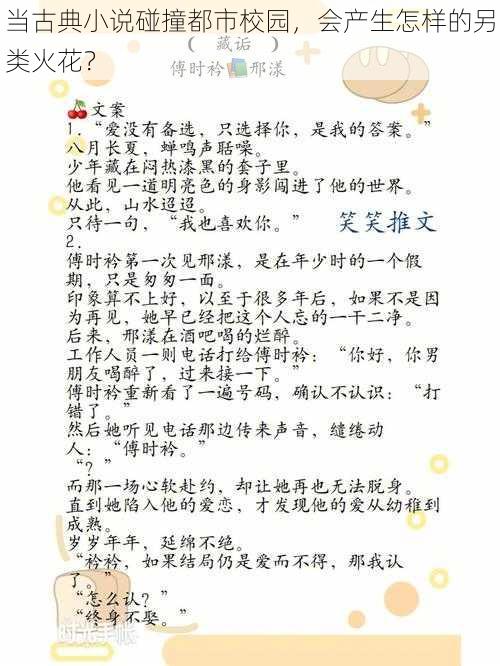 当古典小说碰撞都市校园，会产生怎样的另
类火花？
（ 藏诟 ）
傅时衿 邢漾
文案
1.“爱没有备选，只选择你，是我的答案。”
八月长夏，蝉鸣声聒噪。
少年藏在闷热漆黑的套子里。
他看见一道明亮色的身影闯进了他的世界。
从此，山水迢迢。
只待一句，“我也喜欢你。”
笑笑推文
2.
傅时衿第一次见邢漾，是在年少时的一个假
期，只是匆匆一面。
印象算不上好，以至于很多年后，如果不是因
为再见，她早已经把这个人忘的一干二净。
后来，邢漾在酒吧喝的烂醉。
工作人员一则电话打给傅时衿：“你好，你男
朋友喝醉了，过来接一下。”
傅时衿重新看了一遍号码，确认不认识：“打
错了。”
然后她听见电话那边传来声音，缱绻动
人：“傅时衿。”
“？”
而那一场心软赴约，却让她再也无法脱身。
直到她陷入他的爱恋，才发现他的爱从幼稚到
成熟。
岁岁年年，延绵不绝。
“衿衿，如果结局仍是爱而不得，那我认
了。”
“怎么认？”
“终身不娶。”
时光手帐